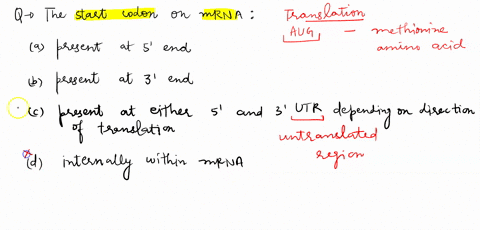 Q → The start codon on mRNA :
Translation
AUG - methionine
amino acid
(a) present at 5' end
(b) present at 3' end
(c) present at either 5' and 3' UTR depending on direction
of translation
untranslated
region
(d) internally within mRNA